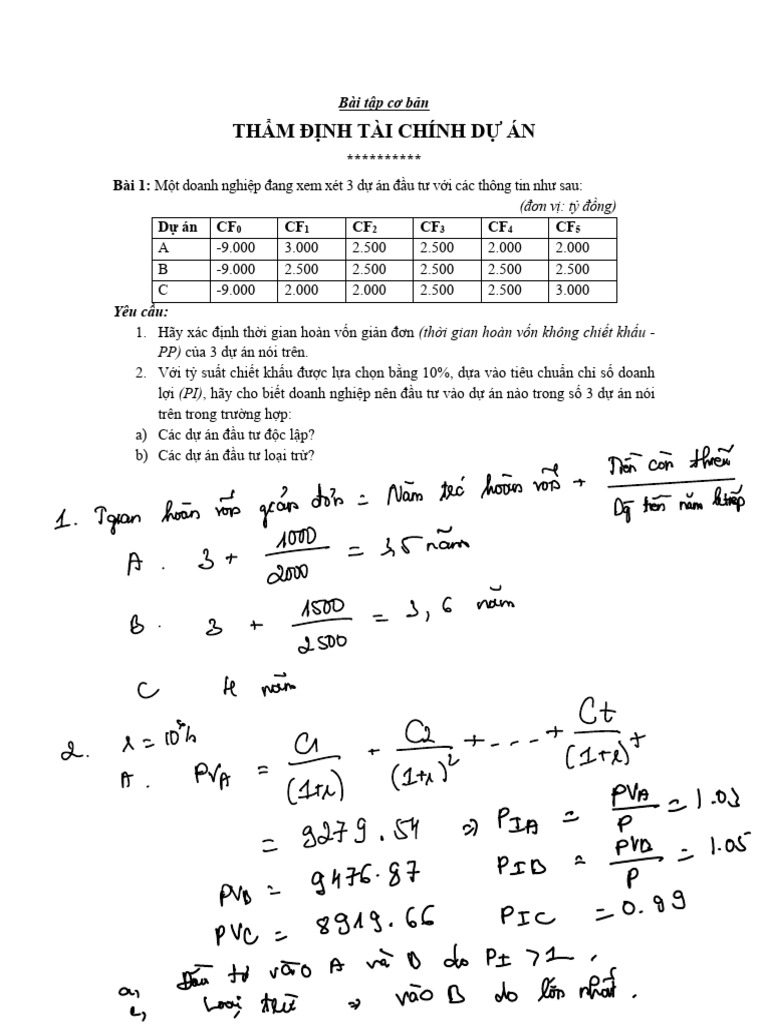 Bài tập cơ bản
THẨM ĐỊNH TÀI CHÍNH DỰ ÁN
**********
Bài 1: Một doanh nghiệp đang xem xét 3 dự án đầu tư với các thông tin như sau:
(đơn vị: tỷ đồng)
Dự án CF0 CF1 CF2 CF3 CF4 CF5
A -9.000 3.000 2.500 2.500 2.000 2.000
B -9.000 2.500 2.500 2.500 2.500 2.500
C -9.000 2.000 2.000 2.500 2.500 3.000
Yêu cầu:
1. Hãy xác định thời gian hoàn vốn giản đơn (thời gian hoàn vốn không chiết khấu -
PP) của 3 dự án nói trên.
2. Với tỷ suất chiết khấu được lựa chọn bằng 10%, dựa vào tiêu chuẩn chỉ số doanh
lợi (PI), hãy cho biết doanh nghiệp nên đầu tư vào dự án nào trong số 3 dự án nói
trên trong trường hợp:
a) Các dự án đầu tư độc lập?
b) Các dự án đầu tư loại trừ?
1. Tgian hoàn vốn giản đơn = Năm trc hoàn vốn + Tiền còn thiếu / Dg tiền năm ktiếp
A. 3 + 1000/2000 = 3,5 năm
B. 3 + 1500/2500 = 3,6 năm
C 4 năm
2. r = 10%
A. PVA = C1/(1+r) + C2/(1+r)² + --- + Ct/(1+r)t
= 9279.54 => PIA = PVA/P = 1.03
PVB = 9476.87 PIB = PVB/P = 1.05
PVC = 8919.66 PIC = 0.99
a, Đầu tư vào A và B do PI > 1.
Loại trừ => vào B do lớn nhất.